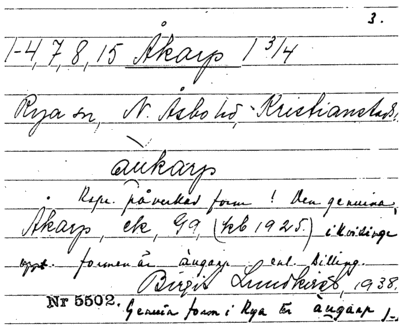 3.
1-4, 7, 8, 15 Åkarp 1 3/4
Rya sn, N. Åsbo hd, Kristianstads
åukarp
påverkad form! Den genuina
Åkarp, ek, G9, (kb 1925.) i Kvidinge
formen är åugarp enl. Billing.
Birgit Lundkvist, 1938.
Nr 5502.
Genuin form i Rya är åugarp